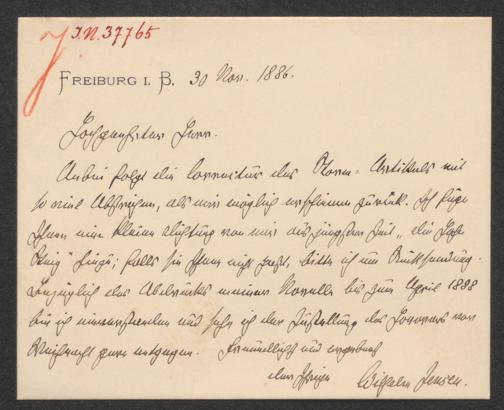 I.N. 37765
FREIBURG I. B. 30 Nov. 1886.
Hochgeehrter Herr.
Anbei folgt die Correctur des Storm-Artikels mit
so viel Abstrichen, als mir möglich erschienen zurück. Ich füge
Ihnen eine kleine Dichtung von mir aus jüngster Zeit „die
hinzu; falls sie Ihnen nicht paßt, bitte ich um Rücksendung.
Bezüglich des Abdrucks meiner Novelle bis zum April 1888
bin ich einverstanden und sehe ich der Zustellung des Honorars vor
Weihnacht gern entgegen. Freundlichst und ergebenst
der Ihrige Wilhelm Jensen.